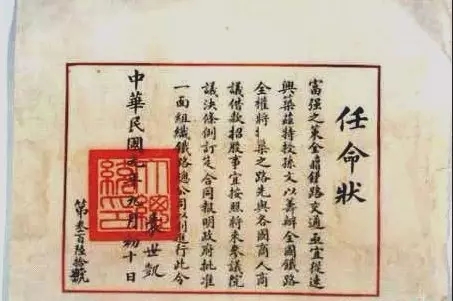 任命狀
富强之策全藉鐵路交通亟宜從速
興築茲特授孫文以籌辦全國鐵路
全權將之路先與各國商人商
議借款招股事宜按照將來參議院
議決條例訂定合同報明政府批准
一面組織鐵路總公司以利進行此令
袁世凱
中華民國元年九月初十日
第叁百陸拾號